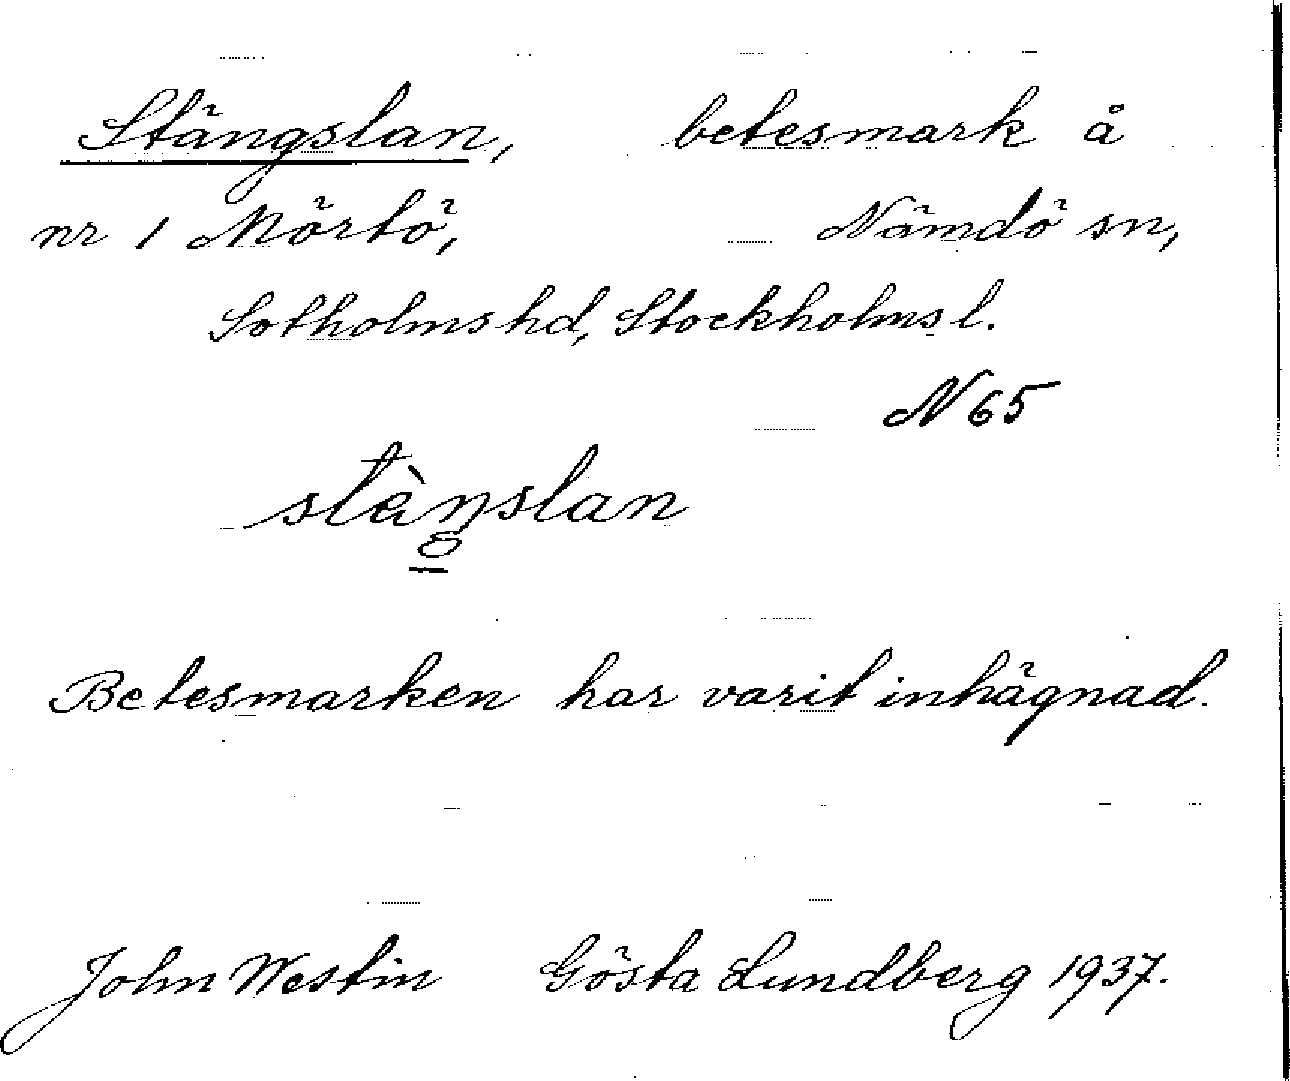 Stängslan, betesmark å
nr 1 Mörtö, Nämdö sn,
Sotholms hd, Stockholms l.
N 65
stèŋslan
Betesmarken har varit inhägnad.
John Westin Gösta Lundberg 1937.